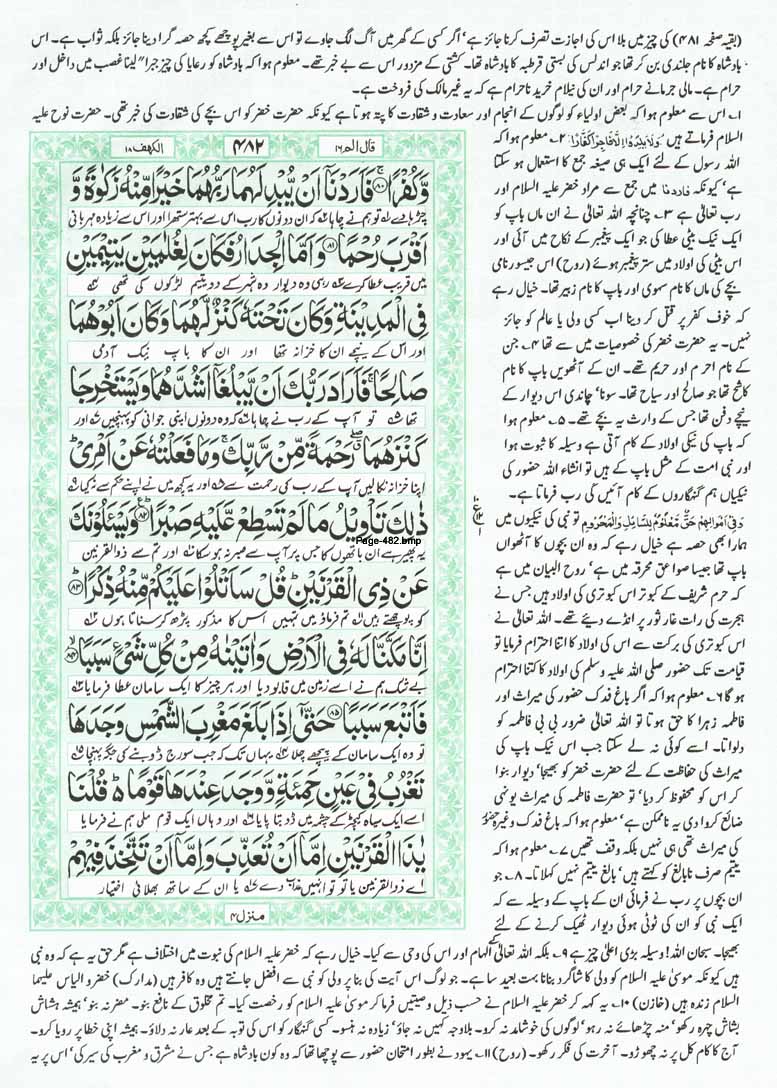 (بقیہ صفحہ ۴۸۱) کی چیز میں بلا اس کی اجازت تصرف کرنا جائز ہے، اگر کسی کے گھر میں آگ لگ جاوے تو اس سے بغیر پوچھے کچھ حصہ گرا دینا جائز بلکہ ثواب ہے۔ اس
بادشاہ کا نام جلندی بن کرتھا جو اندلس کی بستی قرطبہ کا بادشاہ تھا۔ کشتی کے مزدور اس سے بے خبر تھے۔ معلوم ہوا کہ بادشاہ کو رعایا کی چیز جبراً لینا غصب میں داخل اور
حرام ہے۔ مالی جرمانے حرام اور ان کی نیلام خرید نا حرام ہے کہ یہ غیر مالک کی فروخت ہے۔
۱۔ اس سے معلوم ہوا کہ بعض اولیاء کو لوگوں کے انجام اور سعادت و شقاوت کا پتہ ہوتا ہے کیونکہ حضرت خضر کو اس بچے کی شقاوت کی خبر تھی۔ حضرت نوح علیہ
السلام فرماتے ہیں وَلَا يَلِدُوا إِلَّا فَاجِرًا كَفَّارًا ۲۔ معلوم ہوا کہ
اللہ رسول کے لئے ایک ہی صیغہ جمع کا استعمال ہو سکتا
ہے، کیونکہ فاردنا میں جمع سے مراد خضر علیہ السلام اور
رب تعالیٰ ہے ۳۔ چنانچہ اللہ تعالیٰ نے ان ماں باپ کو
ایک نیک بیٹی عطا کی جو ایک پیغمبر کے نکاح میں آئی اور
اس بیٹی کی اولاد میں ستر پیغمبر ہوئے (روح) اس جیسور نامی
بچے کی ماں کا نام سہوی اور باپ کا نام زبیر تھا۔ خیال رہے
کہ خوف کفر پر قتل کر دینا اب کسی ولی یا عالم کو جائز
نہیں۔ یہ حضرت خضر کی خصوصیات میں سے تھا ۴۔ جن
کے نام احرم اور حریم تھے۔ ان کے آٹھویں باپ کا نام
کاشح تھا جو صالح اور سیاح تھا۔ سونا، چاندی اس دیوار کے
نیچے دفن تھا جس کے وارث یہ بچے تھے۔ ۵۔ معلوم ہوا
کہ باپ کی نیکی اولاد کے کام آتی ہے وسیلہ کا ثبوت ہوا
اور نبی امت کے مثل باپ کے ہیں تو انشاء اللہ حضور کی
نیکیاں ہم گنہگاروں کے کام آئیں گی رب فرماتا ہے۔
وَفِي أَمْوَالِهِمْ حَقٌّ مَعْلُومٌ لِلسَّائِلِ وَالْمَحْرُومِ تو نبی کی نیکیوں میں
ہمارا بھی حصہ ہے خیال رہے کہ وہ ان بچوں کا آٹھواں
باپ تھا جیسا صواعق محرقہ میں ہے، روح البیان میں ہے
کہ حرم شریف کے کبوتر اس کبوتری کی اولاد ہیں جس نے
ہجرت کی رات غار ثور پر انڈے دیئے تھے۔ اللہ تعالیٰ نے
اس کبوتری کی برکت سے اس کی اولاد کا اتنا احترام فرمایا تو
قیامت تک حضور صلی اللہ علیہ وسلم کی اولاد کا کتنا احترام
ہو گا ۶۔ معلوم ہوا کہ اگر باغ فدک حضور کی میراث اور
فاطمہ زہرا کا حق ہوتا تو اللہ تعالیٰ ضرور بی بی فاطمہ کو
دلواتا۔ اسے کوئی نہ لے سکتا جب اس نیک باپ کی
میراث کی حفاظت کے لئے حضرت خضر کو بھیجا، دیوار بنوا
کر اس کو محفوظ کر دیا، تو حضرت فاطمہ کی میراث یونہی
ضائع کروا دی یہ ناممکن ہے، معلوم ہوا کہ باغ فدک وغیرہ حضور
کی میراث تھی ہی نہیں بلکہ وقف تھیں ۷۔ معلوم ہوا کہ
یتیم صرف نابالغ کو کہتے ہیں، بالغ یتیم نہیں کہلاتا۔ ۸۔ جو
ان بچوں پر رب نے فرمائی ان کے باپ کے وسیلہ سے کہ
ایک نبی کو ان کی ٹوٹی ہوئی دیوار ٹھیک کرنے کے لئے
قال الم ۱۶ ۴۸۲ الکهف ۱۸
وَّكُفْرًا ۝۸۰ فَاَرَدْنَآ اَنْ يُّبْدِلَهُمَا رَبُّهُمَا خَيْرًا مِّنْهُ زَكٰوةً وَّ
چڑھادے تو ہم نے چاہا کہ ان دونوں کا رب اس سے بہتر ستھرا اور اس سے زیادہ مہربانی
اَقْرَبَ رُحْمًا ۝۸۱ وَاَمَّا الْجِدَارُ فَكَانَ لِغُلٰمَيْنِ يَتِيْمَيْنِ
میں قریب عطا کرے رہی وہ دیوار وہ شہر کے دو یتیم لڑکوں کی تھی
فِي الْمَدِيْنَةِ وَكَانَ تَحْتَهٗ كَنْزٌ لَّهُمَا وَكَانَ اَبُوْهُمَا
اور اس کے نیچے ان کا خزانہ تھا اور ان کا باپ نیک آدمی
صَالِحًا ۚ فَاَرَادَ رَبُّكَ اَنْ يَّبْلُغَآ اَشُدَّهُمَا وَيَسْتَخْرِجَا
تھا تو آپ کے رب نے چاہا کہ وہ دونوں اپنی جوانی کو پہنچیں اور
كَنْزَهُمَا ۖ رَحْمَةً مِّنْ رَّبِّكَ ۚ وَمَا فَعَلْتُهٗ عَنْ اَمْرِيْ ؕ
اپنا خزانہ نکالیں آپ کے رب کی رحمت سے اور یہ کچھ میں نے اپنے حکم سے نہ کیا
ذٰلِكَ تَاْوِيْلُ مَا لَمْ تَسْطِعْ عَّلَيْهِ صَبْرًا ۝۸۲ وَيَسْئَلُوْنَكَ
یہ پھیر ہے ان باتوں کا جس پر آپ سے صبر نہ ہوسکا اور تم سے ذوالقرنین
Page-482.bmp
عَنْ ذِي الْقَرْنَيْنِ ؕ قُلْ سَاَتْلُوْا عَلَيْكُمْ مِّنْهُ ذِكْرًا ۝۸۳
کو پوچھتے ہیں تم فرماؤ میں تمہیں اس کا مذکور پڑھ کر سناتا ہوں
اِنَّا مَكَّنَّا لَهٗ فِي الْاَرْضِ وَاٰتَيْنٰهُ مِنْ كُلِّ شَيْءٍ سَبَبًا ۝۸۴
بے شک ہم نے اسے زمین میں قابو دیا اور ہر چیز کا ایک سامان عطا فرمایا
فَاَتْبَعَ سَبَبًا ۝۸۵ حَتّٰٓى اِذَا بَلَغَ مَغْرِبَ الشَّمْسِ وَجَدَهَا
تو وہ ایک سامان کے پیچھے چلا یہاں تک کہ جب سورج ڈوبنے کی جگہ پہنچا
تَغْرُبُ فِيْ عَيْنٍ حَمِئَةٍ وَّوَجَدَ عِنْدَهَا قَوْمًا ؕ قُلْنَا
اسے ایک سیاہ کیچڑ کے چشمے میں ڈوبتا پایا اور وہاں ایک قوم ملی ہم نے فرمایا
يٰذَا الْقَرْنَيْنِ اِمَّآ اَنْ تُعَذِّبَ وَاِمَّآ اَنْ تَتَّخِذَ فِيْهِمْ
اے ذوالقرنین یا تو تو انہیں عذاب دے یا ان کے ساتھ بھلائی اختیار
منزل ۴
بھیجا۔ سبحان اللہ! وسیلہ بڑی اعلیٰ چیز ہے ۹۔ بلکہ اللہ تعالیٰ کے الہام اور اس کی وحی سے کیا۔ خیال رہے کہ خضر علیہ السلام کی نبوت میں اختلاف ہے مگر حق یہ ہے کہ وہ نبی
ہیں کیونکہ موسیٰ علیہ السلام کو ولی کا شاگرد بنانا بہت بعید سا ہے۔ جو لوگ اس آیت کی بنا پر ولی کو نبی سے افضل جانتے ہیں وہ کافر ہیں (مدارک) خضر و الیاس علیہما
السلام زندہ ہیں (خازن) ۱۰۔ یہ کہہ کر خضر علیہ السلام نے حسب ذیل وصیتیں فرما کر موسیٰ علیہ السلام کو رخصت کیا۔ تم مخلوق کے نافع بنو۔ مضر نہ بنو، ہمیشہ ہشاش
بشاش چہرہ رکھو، منہ چڑھائے نہ رہو، لوگوں کی خوشامد نہ کرو۔ بلاوجہ کہیں نہ جاؤ، زیادہ نہ ہنسو۔ کسی گنہگار کو اس کی توبہ کے بعد عار نہ دلاؤ۔ ہمیشہ اپنی خطا پر رویا کرو۔
آج کا کام کل پر نہ چھوڑو۔ آخرت کی فکر رکھو۔ (روح) ۱۱۔ یہود نے بطور امتحان حضور سے پوچھا تھا کہ وہ کون بادشاہ ہے جس نے مشرق و مغرب کی سیر کی، اس پر یہ